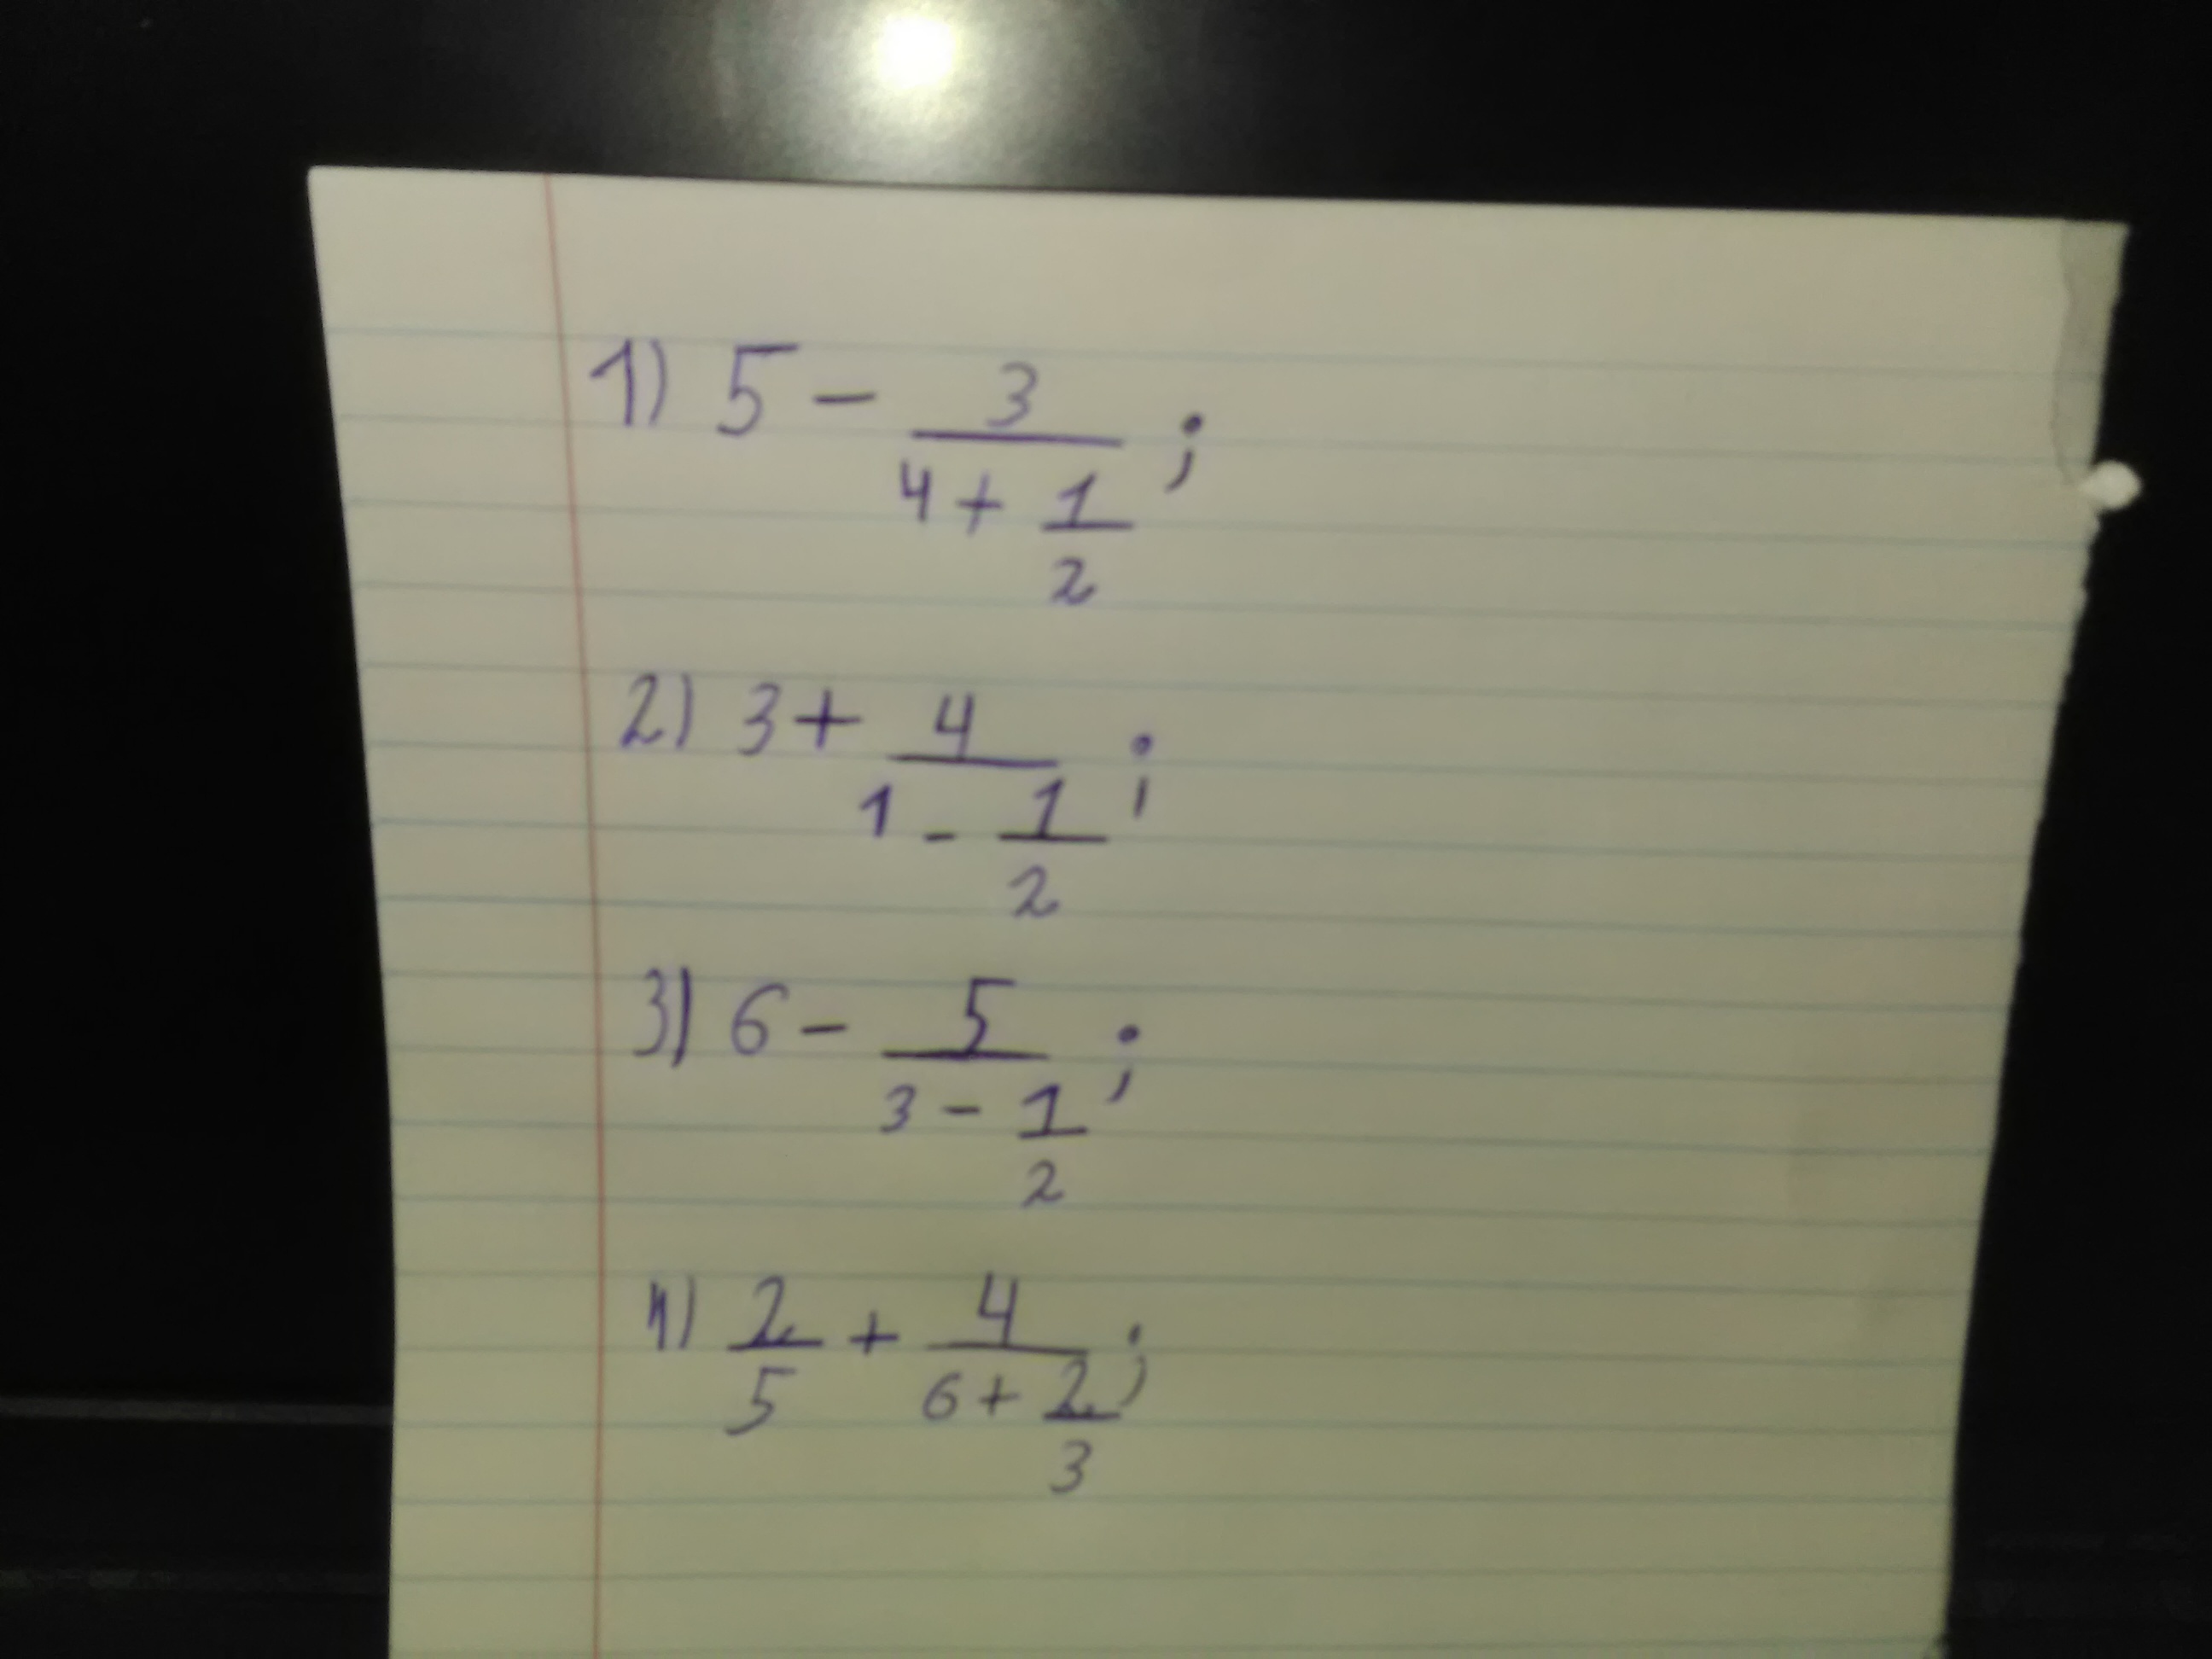 1) 5 - \frac{3}{4 + \frac{1}{2}} ;
2) 3 + \frac{4}{1 - \frac{1}{2}} ;
3) 6 - \frac{5}{3 - \frac{1}{2}} ;
4) \frac{2}{5} + \frac{4}{6 + \frac{2}{3}} ;